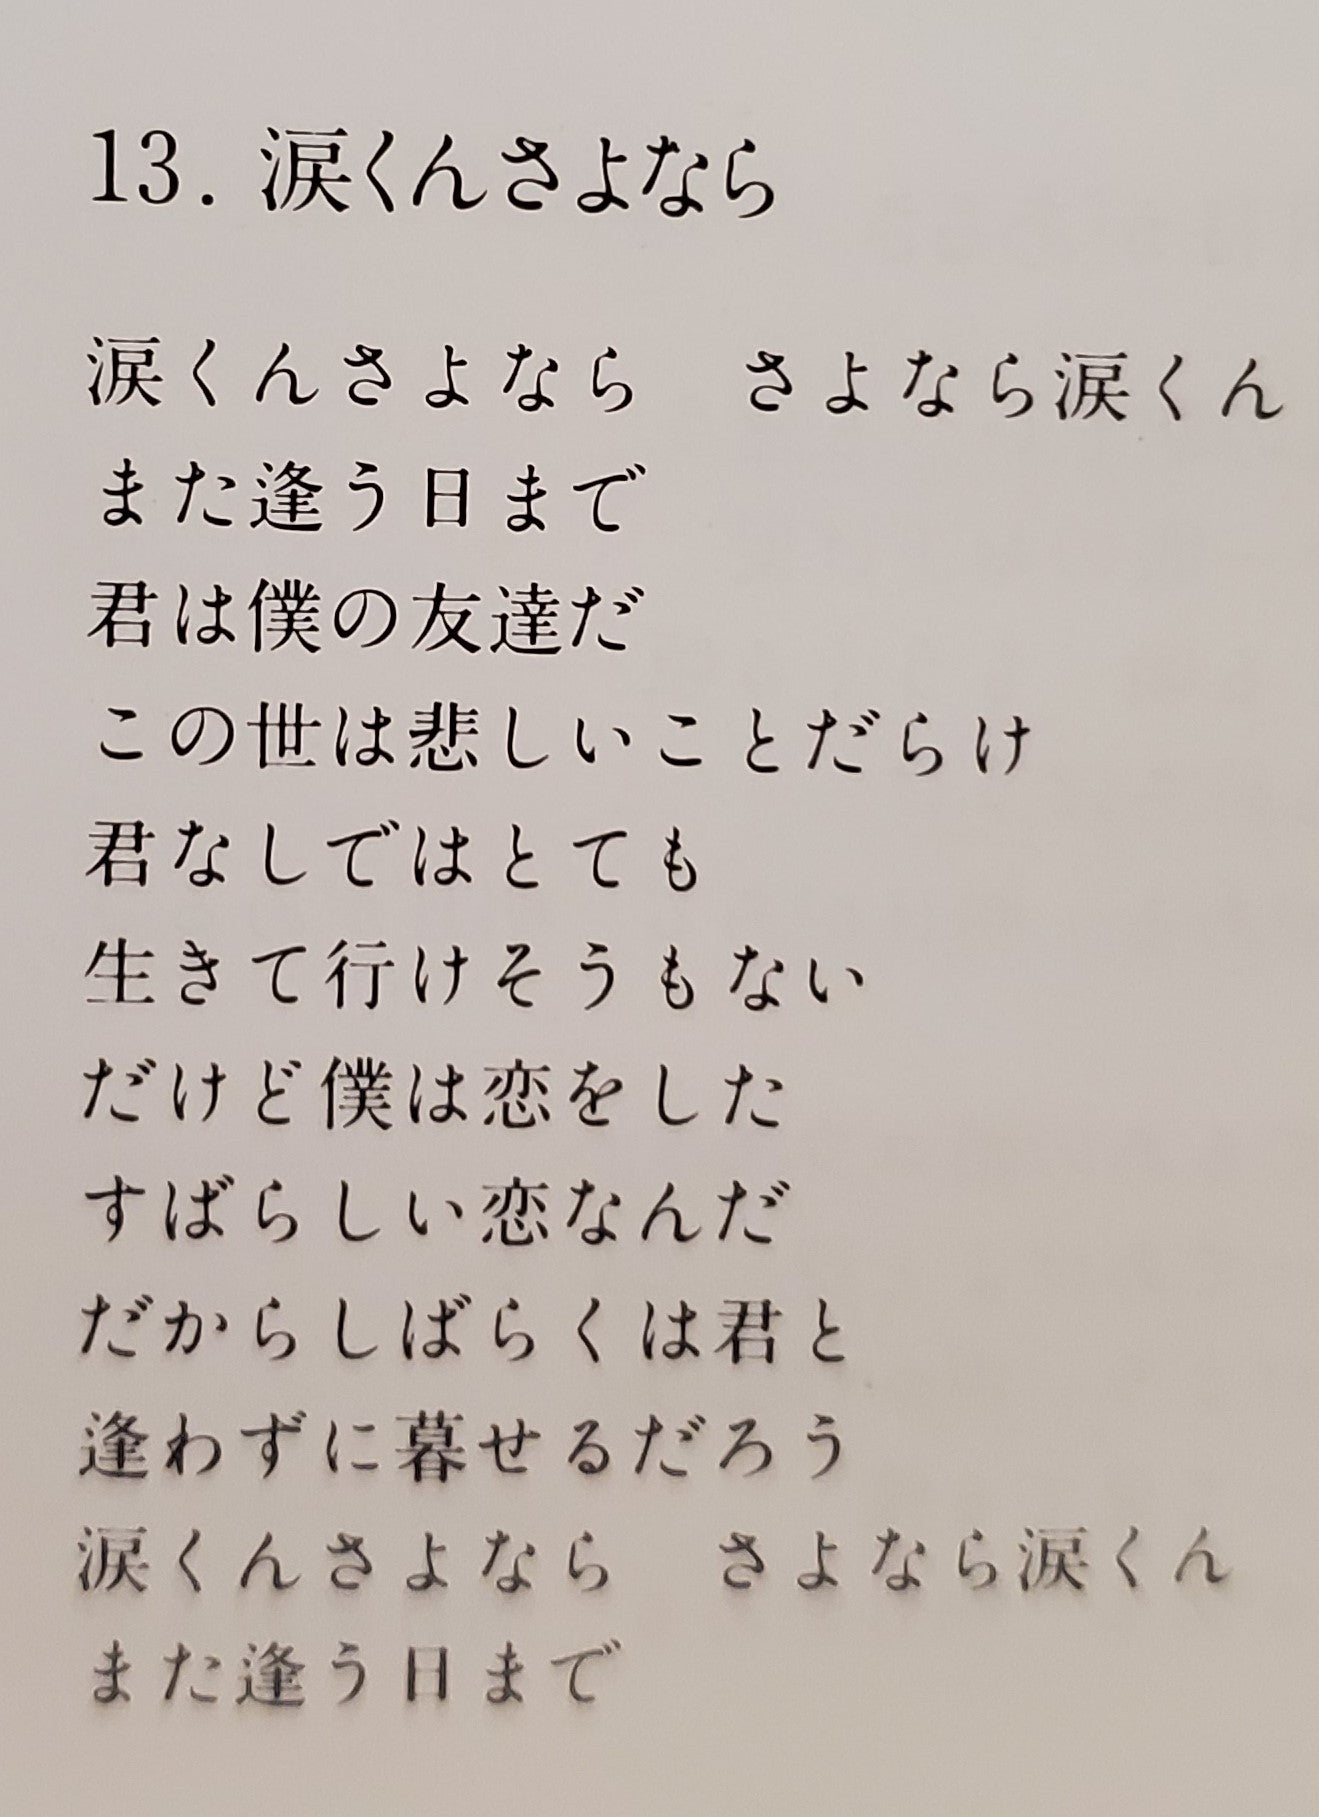 13. 涙くんさよなら
涙くんさよなら　さよなら涙くん
また逢う日まで
君は僕の友達だ
この世は悲しいことだらけ
君なしではとても
生きて行けそうもない
だけど僕は恋をした
すばらしい恋なんだ
だからしばらくは君と
逢わずに暮せるだろう
涙くんさよなら　さよなら涙くん
また逢う日まで